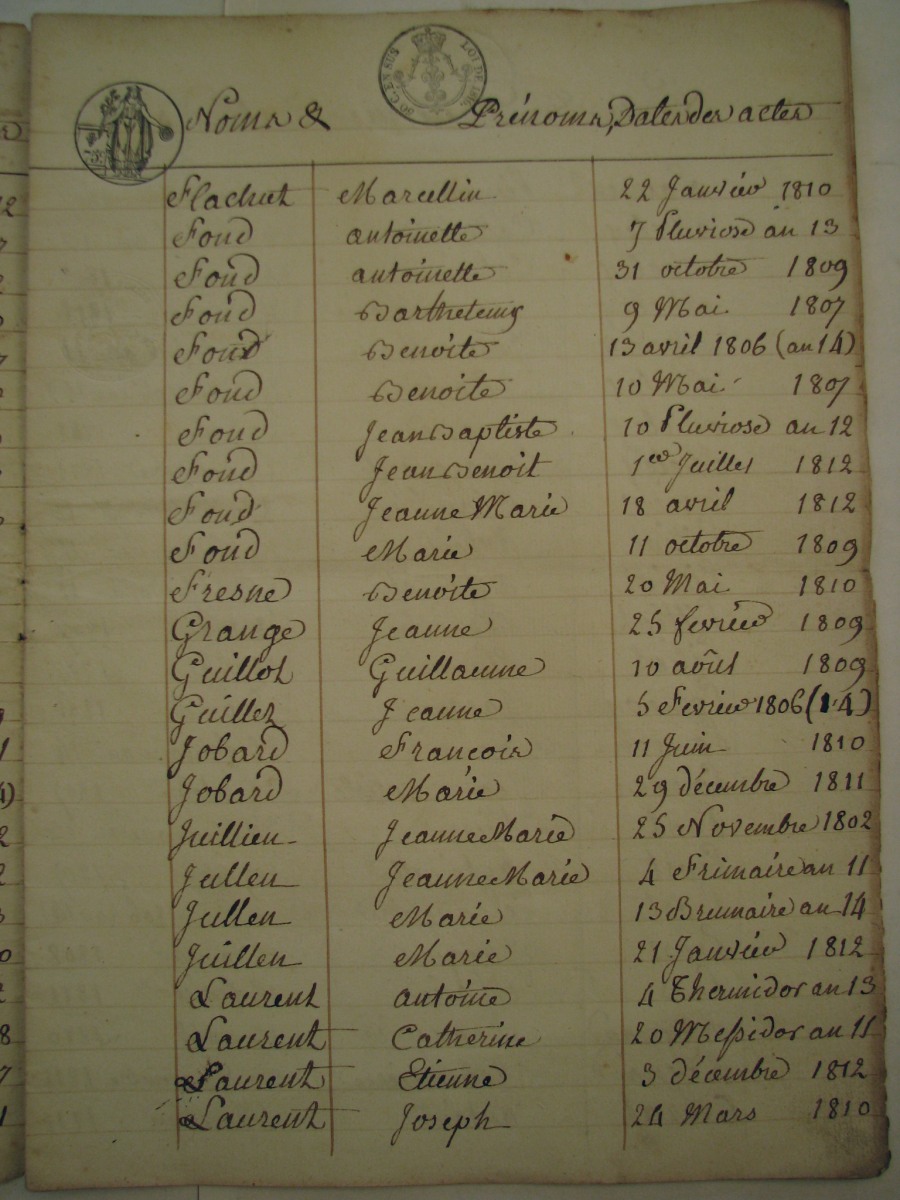 50 C. EN SUS LOI DE 1816
Noms & Prénoms, Dates des actes
Flachat Marcellin 22 Janvier 1810
Fond antoinette 7 Pluviose an 13
Fond antoinette 31 octobre 1809
Fond Barthelemy 9 Mai 1807
Fond Benoite 13 avril 1806 (an 14)
Fond Benoite 10 Mai 1807
Fond Jean Baptiste 10 Pluviose an 12
Fond Jean Benoit 1er Juillet 1812
Fond Jeanne Marie 18 avril 1812
Fond Marie 11 octobre 1809
Fresne Benoîte 20 Mai 1810
Grange Jeanne 25 fevrier 1809
Guillot Guillaume 10 août 1809
Guillet Jeanne 5 Fevrier 1806 (14)
Jobard François 11 Juin 1810
Jobard Marie 29 décembre 1811
Juillien Jeanne Marie 25 Novembre 1802
Jullen Jeanne Marie 4 Frimaire an 11
Jullen Marie 13 Brumaire an 14
Juillen Marie 21 Janvier 1812
Laurent antoine 4 Thermidor an 13
Laurent Catherine 20 Messidor an 11
Laurent Etienne 3 décembre 1812
Laurent Joseph 24 Mars 1810